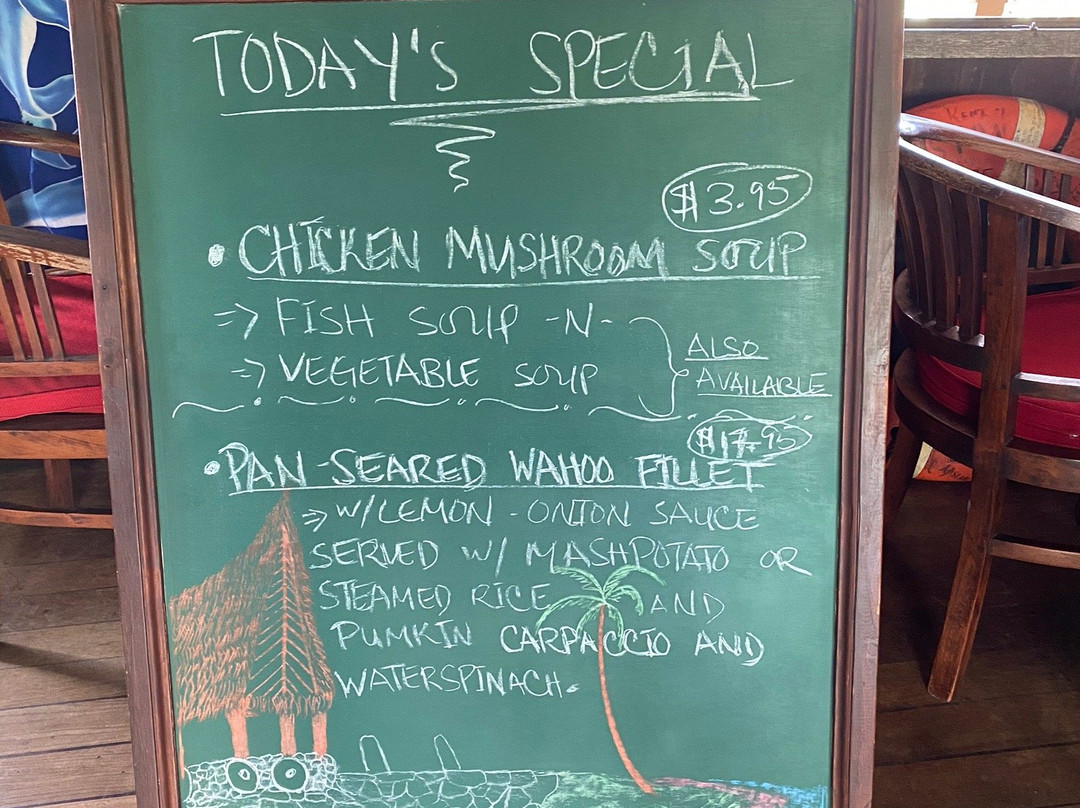 TODAY'S SPECIAL
$3.95
• CHICKEN MUSHROOM SOUP
=> FISH SOUP -N-
=> VEGETABLE SOUP
ALSO
AVAILABLE
$17.95
• PAN-SEARED WAHOO FILLET
=> W/LEMON-ONION SAUCE
SERVED W/ MASHPOTATO OR
STEAMED RICE AND
PUMKIN CARPACCIO AND
WATERSPINACH.